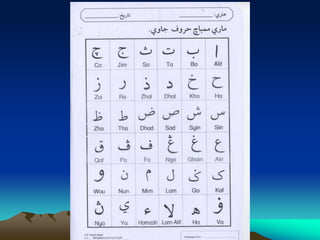 هاري: تاريخ:
ماري ممباچ حروف جاوي.
ا ب ت ث ج چ
Ca Jim Sa Ta Ba Alif
ح خ د ذ ر ز
Zai Ra Zhal Dhal Kho Ha
س ش ص ض ط ظ
Zho Tho Dhod Sod Syin Sin
ع غ ڠ ف ڤ ق
Qaf Pa Fa Nga Ghain Ain
ک ݢ ل م ن و
Wau Nun Mim Lam Ga Kaf
ۏ ه لا ء ي ڽ
Nya Ya Hamzah Lam-Alif Ha Va